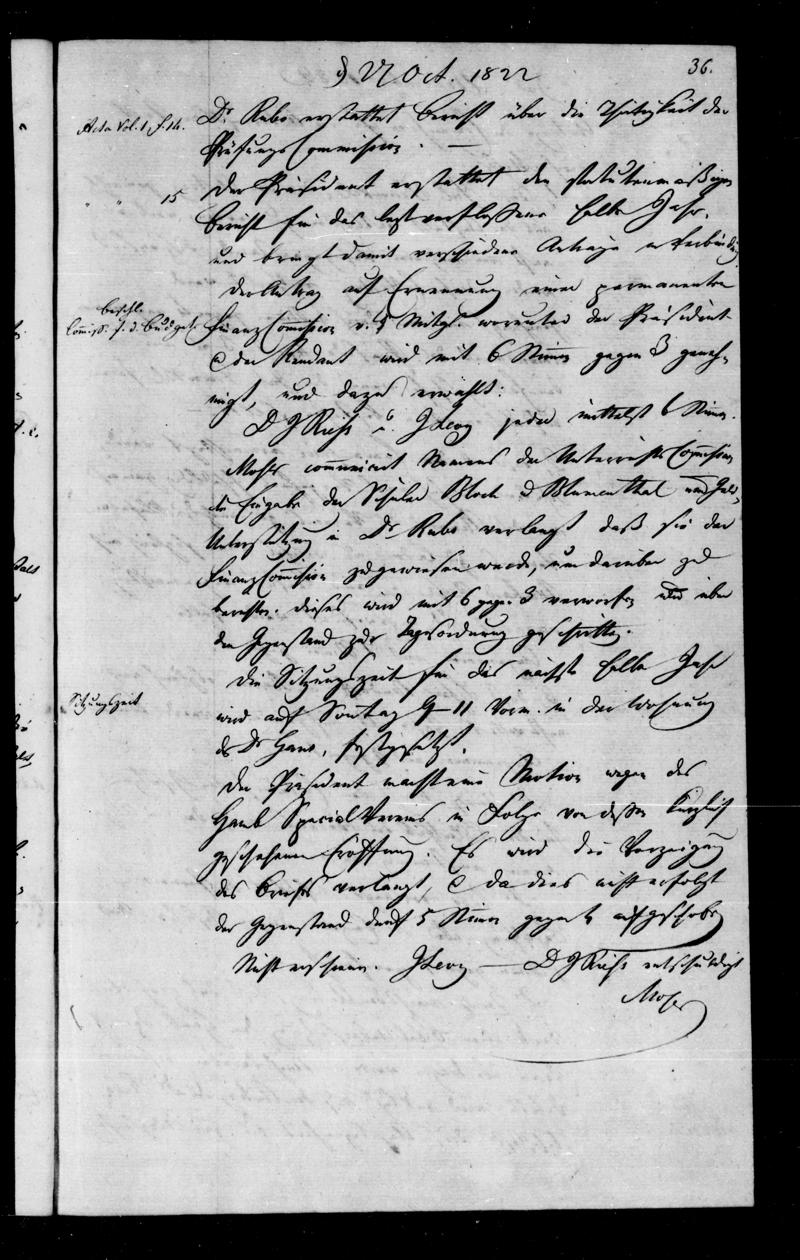 36.
27 Oct. 1822
Acta Vol. 1, f. 14.
Dr Rubo erstattet Bericht über die Thätigkeit der
Prüfungs Commission. —
" " 15
Der Präsident erstattet den statutenmäßigen
Bericht für das letztverflossene halbe Jahr,
und bringt damit verschiedene Anträge in Verbindung.
Der Antrag auf Ernennung einer permanenten
beschl. Commiss. f. d. Budget.
Finanz Commission v. 5 Mitgl. worunter der Präsident
& der Rendant wird mit 6 Stimmen gegen 3 geneh-
migt, und dazu erwählt:
D J Riess u. J Levy jeder mittelst 6 Stimmen.
Moser communicirt Namens der Unterrichts Commission
die Eingabe der Schüler Block & Blumenthal um Geld-
Unterstützung u Dr Rubo verlangt daß sie der
Finanz Commission zugewiesen werde, um darüber zu
berichten. dieses wird mit 6 gegen 3 verworfen und über
den Gegenstand zur Tagesordnung geschritten.
Sitzungszeit
Die Sitzungszeit für das nächste halbe Jahr
wird auf Sontag 9–11 Vorm. in der Wohnung
des Dr Gans, festgesetzt.
Der Präsident macht eine Motion wegen des
Hamb Special Vereins in Folge von dessen kürzlich
geschehener Eröffnung. Es wird die Vorzeigung
des Briefes verlangt, & da dies nicht erfolgt
der Gegenstand durch 5 Stimmen gegen 4 aufgeschoben
Nicht erschienen. J Levy — D J Riess entschuldigt
Moser